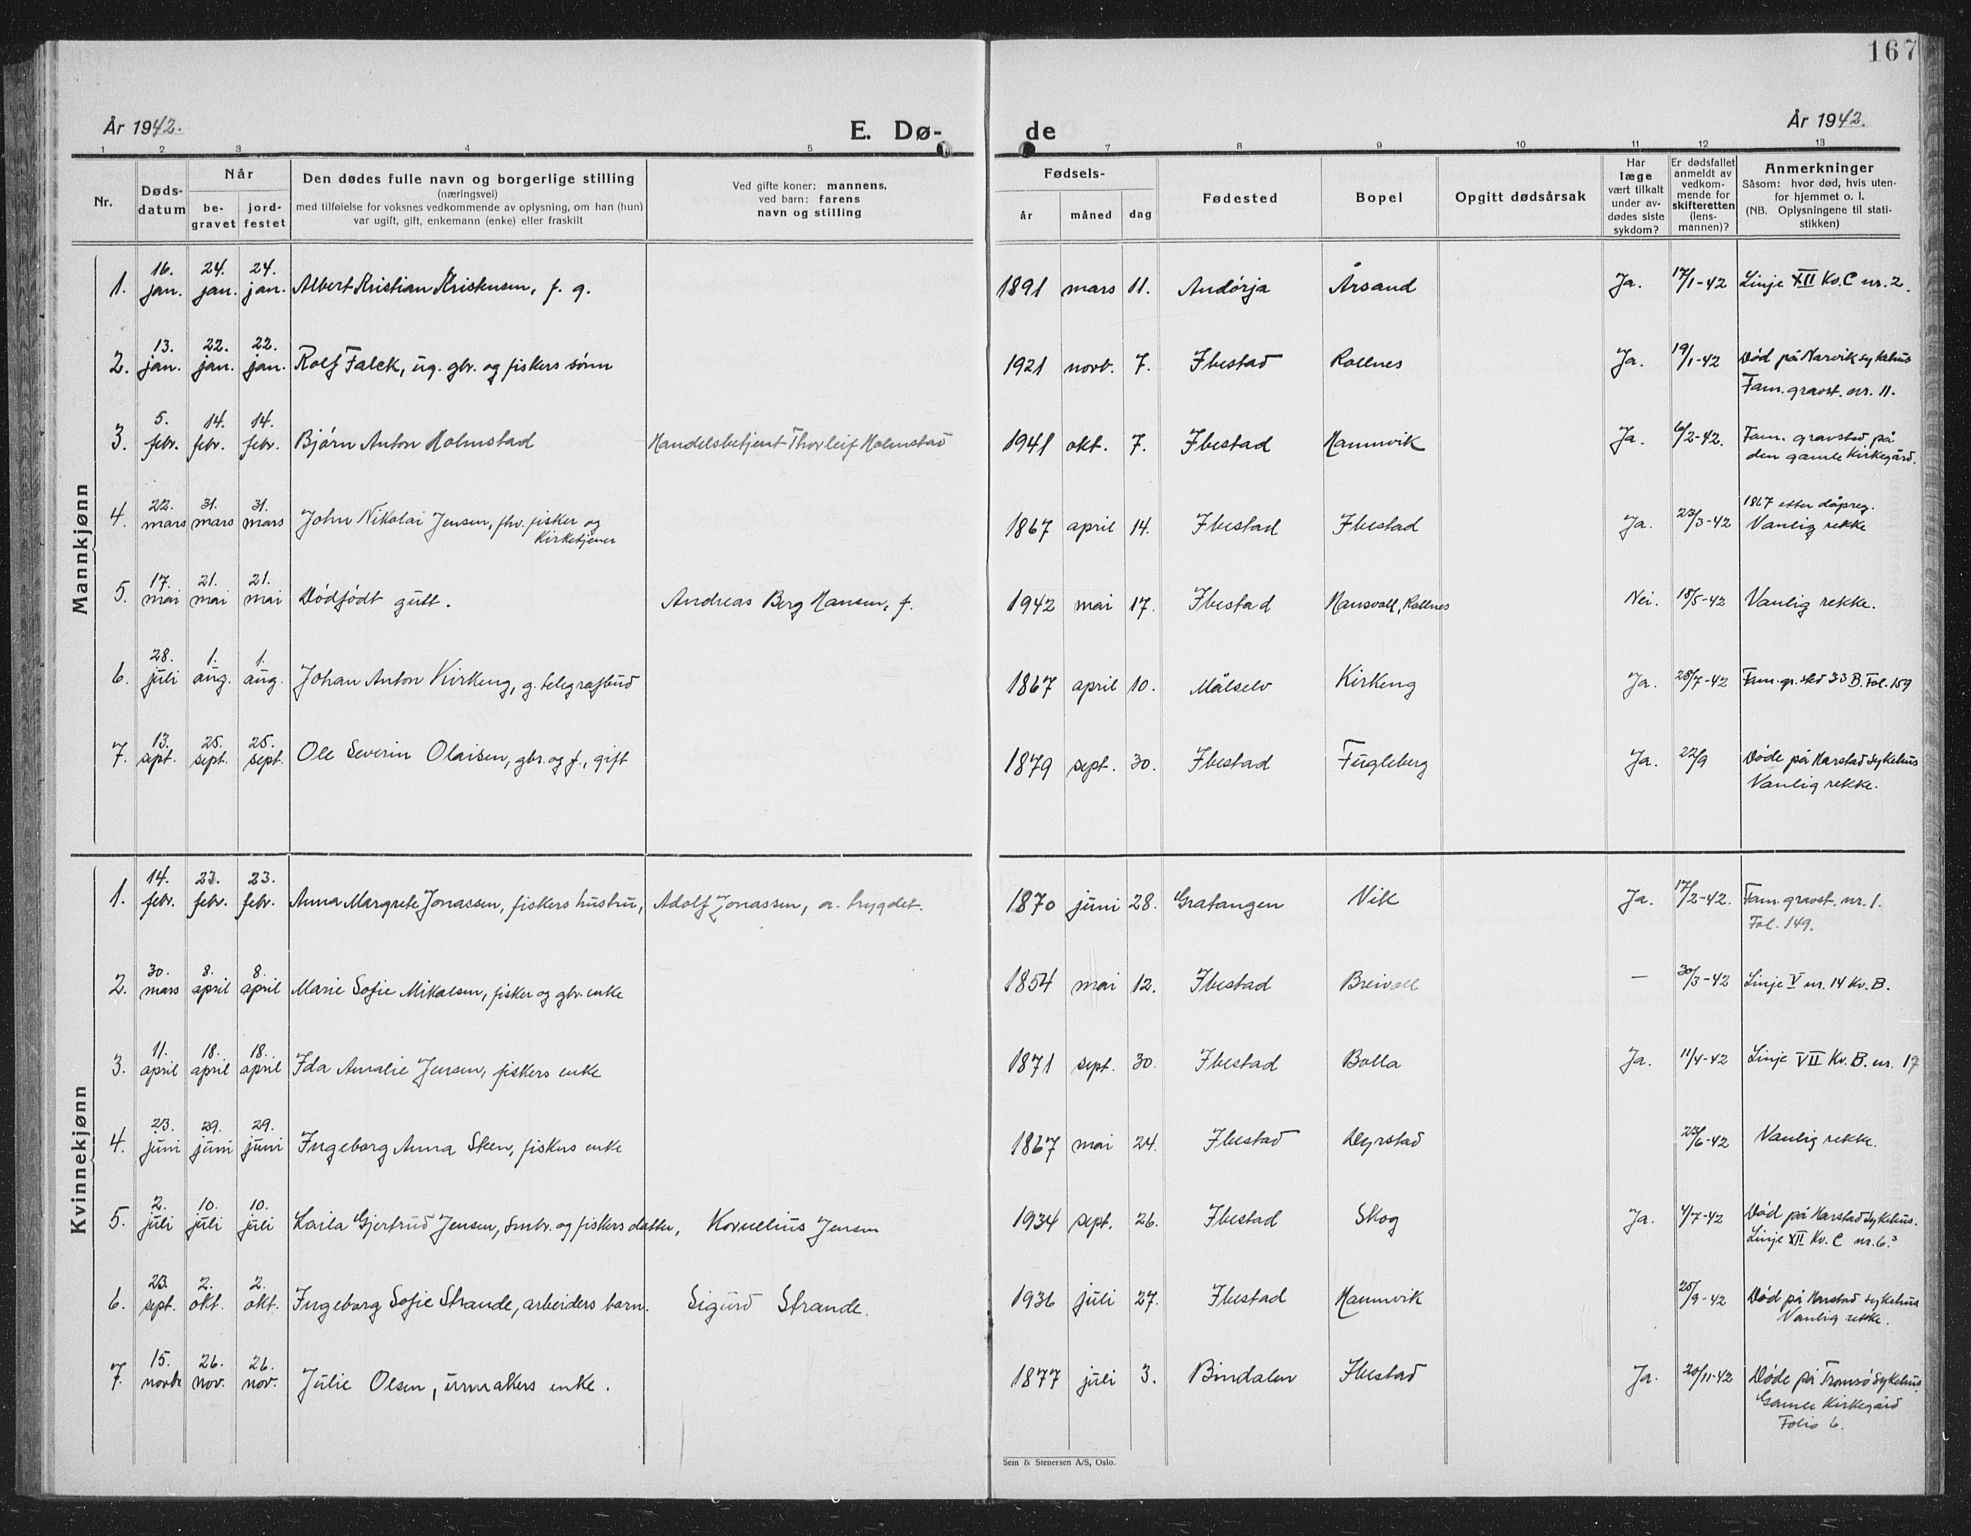 167
År 1942.
E. Dø-
de
År 1942.
1 2 3 4 5 7 8 9 10 11 12 13
Nr.
Døds-
datum
Når
be-
gravet
jord-
festet
Den dødes fulle navn og borgerlige stilling
(næringsvei)
med tilføielse for voksnes vedkommende av oplysning, om han (hun)
var ugift, gift, enkemann (enke) eller fraskilt
Ved gifte koner: mannens,
ved barn: farens
navn og stilling
Fødsels-
år måned dag
Fødested
Bopel
Opgitt dødsårsak
Har
læge
vært tilkalt
under av-
dødes siste
sykdom?
Er dødsfallet
anmeldt av
vedkom-
mende for
skifteretten
(lens-
mannen)?
Anmerkninger
Såsom: hvor død, hvis uten-
for hjemmet o. l.
(NB. Oplysningene til stati-
stikken)
Mannkjønn
1. 16. jan. 24. jan. 24. jan. Albert Kristian Kristensen, f. g. 1891 mars 11. Andørja Årsand Ja. 17/1-42 Linje XII Kv. C nr. 2.
2. 13. jan. 22. jan. 22. jan. Rolf Falck, ug. gbr. og fiskers sønn 1921 novb. 7. Ibestad Rollnes Ja. 19/1-42 Død på Narvik sykehus
Fam. gravst. nr. 11.
3. 5. febr. 14. febr. 14. febr. Bjørn Anton Holmstad Handelsbetjent Thorleif Holmstad 1941 okt. 7. Ibestad Hamnvik Ja. 6/2-42. Fam. gravsted på
den gamle Kirkegård.
4. 22. mars 31. mars 31. mars John Nikolai Jensen, fhv. fisker og
Kirketjener 1867 april 14. Ibestad Ibestad Ja. 23/3-42 1867 etter dåpreg.
Vanlig rekke
5. 17. mai 21. mai 21. mai Dødfødt gutt. Andreas Berg Hansen, f. 1942 mai 17. Ibestad Hansvoll, Rollnes Nei. 18/5-42 Vanlig rekke.
6. 28. juli 1. aug. 1. aug. Johan Anton Kirkeng, g. telegrafbud 1867 april 10. Målselv Kirkeng Ja. 28/7-42 Fam. gr. sted 33 B. Fol. 159
7. 13. sept. 25. sept. 25. sept. Ole Severin Olaisen, gbr. og f., gift 1879 sept. 30. Ibestad Fugleberg Ja. 22/9 Døde på Harstad sykehus
Vanlig rekke.
Kvinnekjønn
1. 14. febr. 23. febr. 23. febr. Anna Margrete Jonassen, fiskers hustru, Adolf Jonassen, a. trygdet. 1870 juni 28. Gratangen Vik Ja. 17/2-42. Fam. gravst. nr. 1.
Fol. 149.
2. 30. mars 8. april 8. april Marie Sofie Mikalsen, fisker og gbr. enke 1854 mai 12. Ibestad Breivoll — 30/3-42 Linje V nr. 14 Kv. B.
3. 11. april 18. april 18. april Ida Amalie Jensen, fiskers enke 1871 sept. 30. Ibestad Bolla Ja. 11/4-42 Linje VII Kv. B. nr. 17
4. 23. juni 29. juni 29. juni Ingeborg Anna Steen, fiskers enke 1867 mai 24. Ibestad Dyrstad 23/6-42 Vanlig rekke.
5. 2. juli 10. juli 10. juli Laila Gjertrud Jensen, Smbr. og fiskers datter, Kornelius Jensen 1934 sept. 26. Ibestad Skog Ja. 4/7-42 Død på Harstad sykehus.
Linje XII Kv. C nr. 6.
6. 23. sept. 2. okt. 2. okt. Ingeborg Sofie Strande, arbeiders barn. Sigurd Strande. 1936 juli 27. Ibestad Hamnvik 25/9-42 Død på Harstad sykehus
Vanlig rekke.
7. 15. novb. 26. nov. 26. nov. Julie Olsen, urmakers enke. 1877 juli 3. Bindalen Ibestad Ja. 20/11-42 Døde på Tromsø Sykehus
Gamle Kirkegård
Folio 6.
Sem & Stenersen A/S, Oslo.